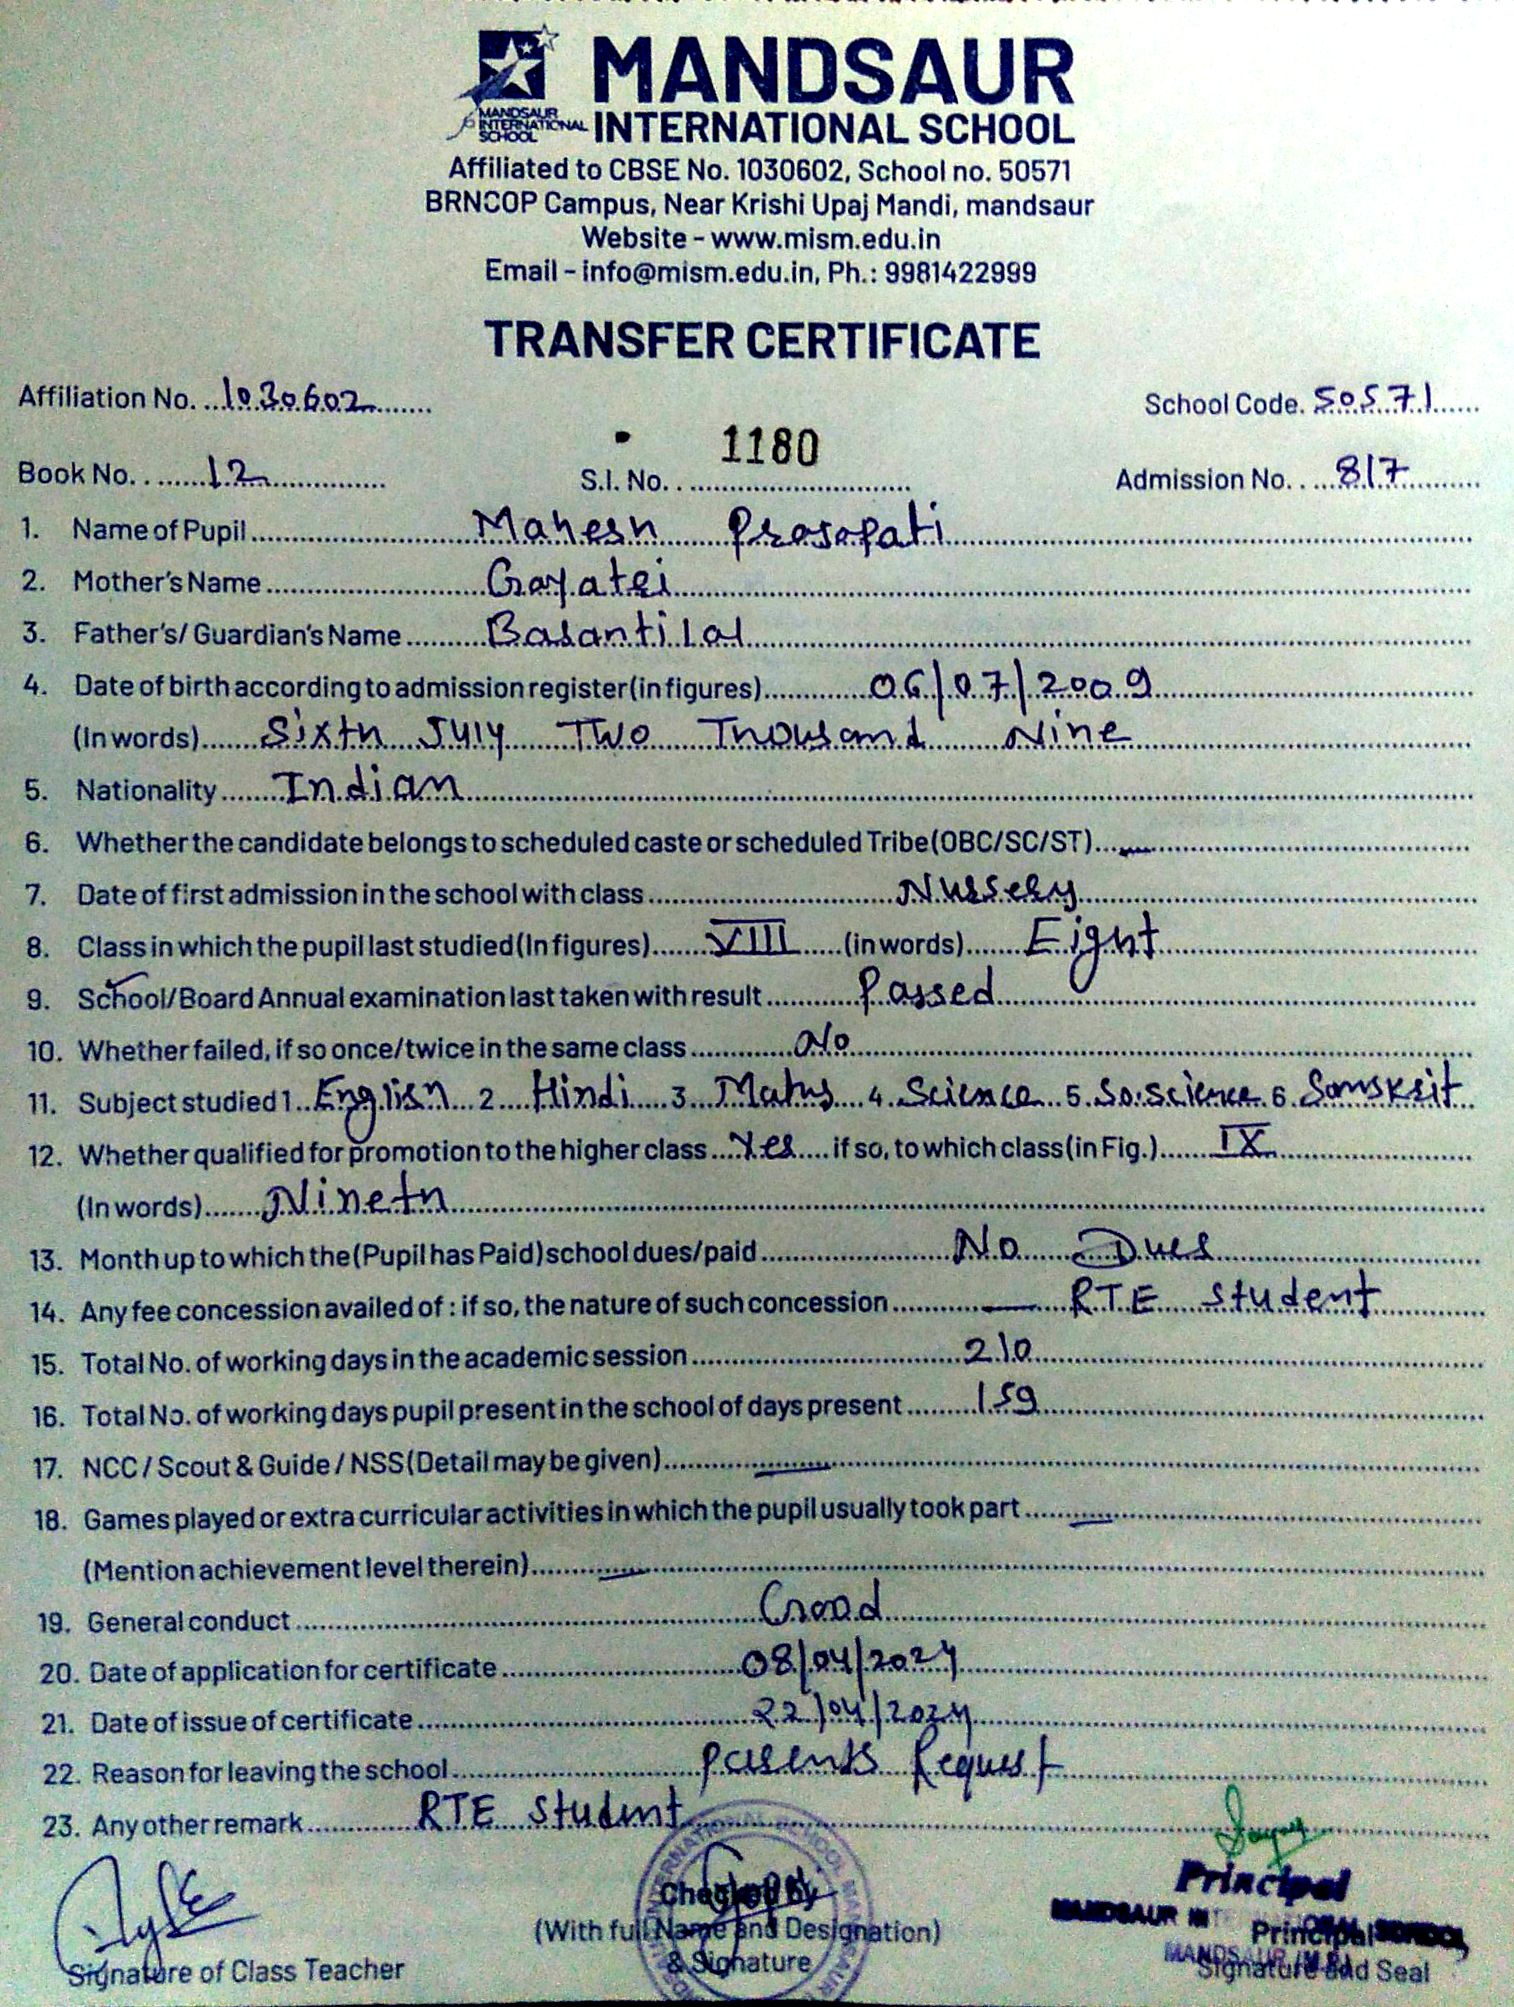 MANDSAUR
INTERNATIONAL SCHOOL
MANDSAUR
INTERNATIONAL
SCHOOL
Affiliated to CBSE No. 1030602, School no. 50571
BRNCOP Campus, Near Krishi Upaj Mandi, mandsaur
Website - www.mism.edu.in
Email - info@mism.edu.in, Ph.: 9981422999
TRANSFER CERTIFICATE
Affiliation No. 1030602 School Code. 50571
Book No. 12 S.I. No. 1180 Admission No. 817
1. Name of Pupil Mahesh Prajapati
2. Mother's Name Gayatri
3. Father's/ Guardian's Name Basantilal
4. Date of birth according to admission register(in figures) 06/07/2009
(In words) Sixth July Two Thousand Nine
5. Nationality Indian
6. Whether the candidate belongs to scheduled caste or scheduled Tribe(OBC/SC/ST) —
7. Date of first admission in the school with class Nursery
8. Class in which the pupil last studied(In figures) VIII (in words) Eight
9. School/Board Annual examination last taken with result Passed
10. Whether failed, if so once/twice in the same class No
11. Subject studied 1 English 2 Hindi 3 Maths 4 Science 5 So.science 6 Samskrit
12. Whether qualified for promotion to the higher class Yes if so, to which class(in Fig.) IX
(In words) Nineth
13. Month up to which the(Pupil has Paid)school dues/paid No Dues
14. Any fee concession availed of : if so, the nature of such concession — RTE student
15. Total No. of working days in the academic session 210
16. Total No. of working days pupil present in the school of days present 159
17. NCC / Scout & Guide / NSS(Detail may be given) —
18. Games played or extra curricular activities in which the pupil usually took part —
(Mention achievement level therein) —
19. General conduct Good
20. Date of application for certificate 08/04/2024
21. Date of issue of certificate 22/04/2024
22. Reason for leaving the school parents Request
23. Any other remark RTE student
Checked by
(With full Name and Designation)
& Signature
Signature of Class Teacher
Principal
MANDSAUR INTERNATIONAL SCHOOL
MANDSAUR (M.P.)
Principal
Signature and Seal